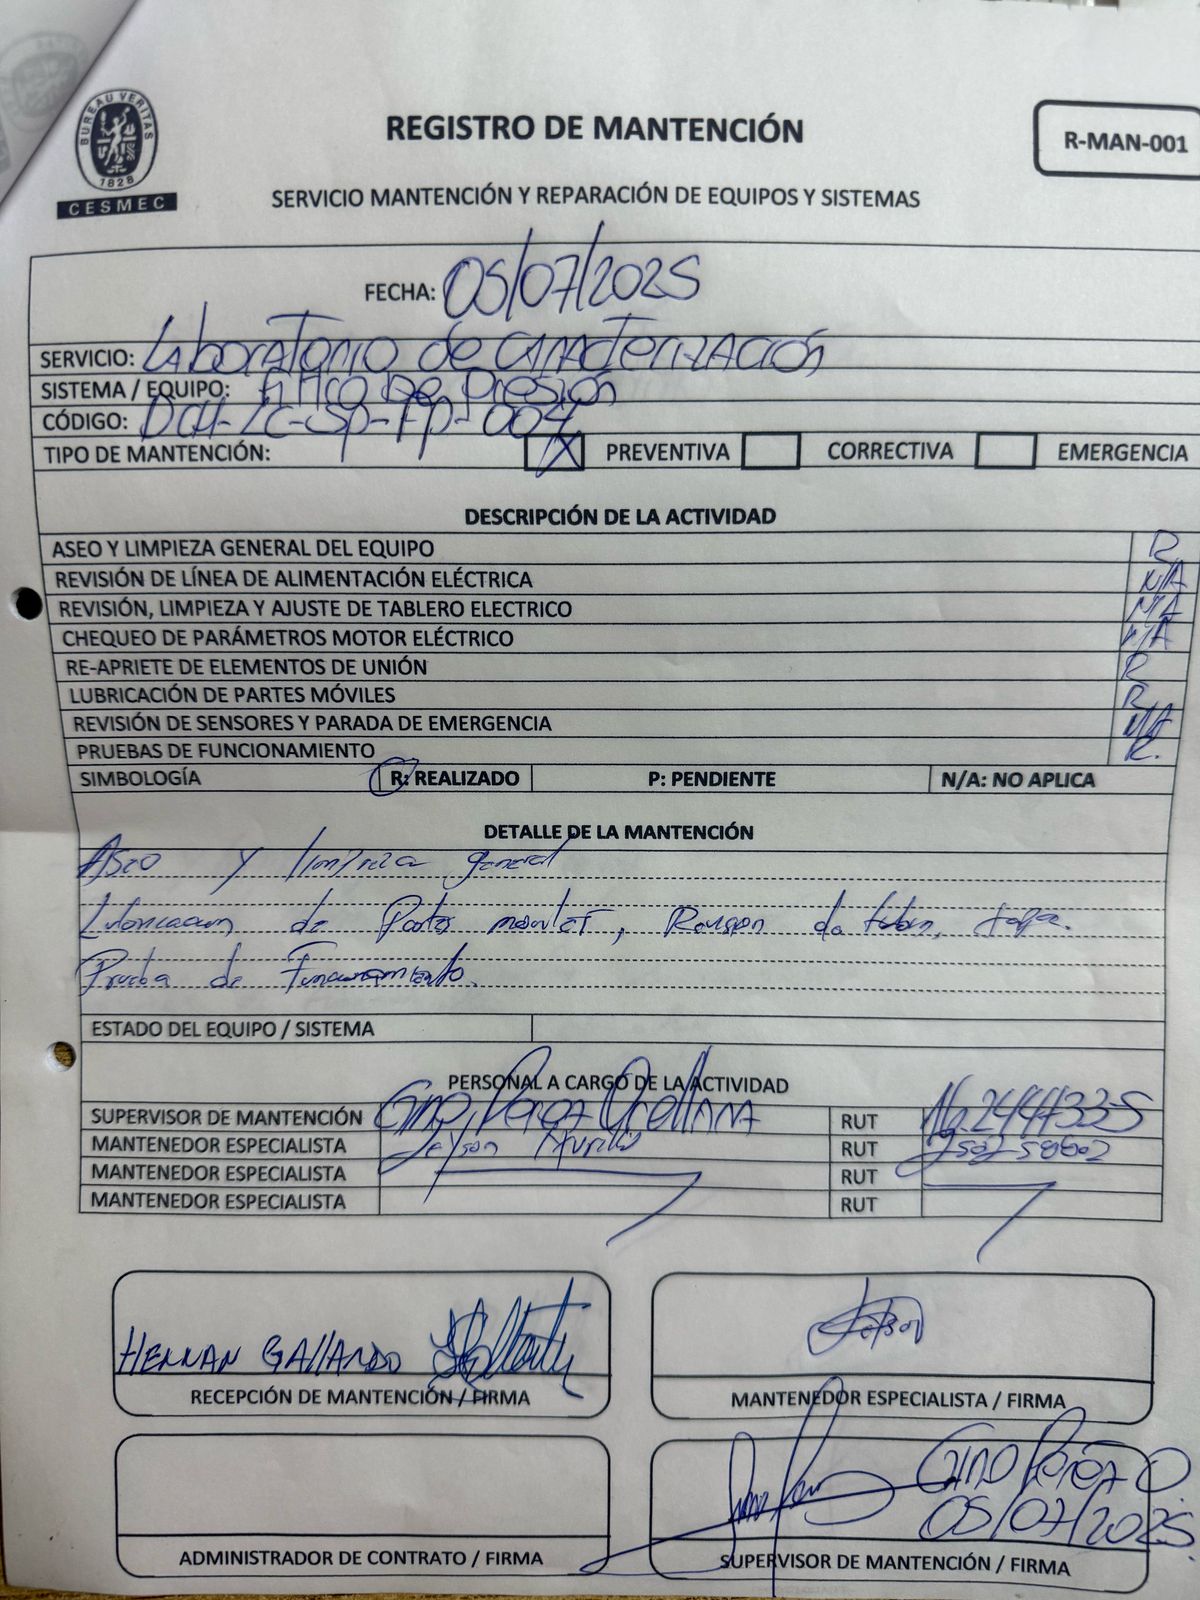 BUREAU VERITAS
1828
CESMEC
REGISTRO DE MANTENCIÓN
R-MAN-001
SERVICIO MANTENCIÓN Y REPARACIÓN DE EQUIPOS Y SISTEMAS
FECHA: 05/07/2025
SERVICIO: Laboratorio de Caracterización
SISTEMA / EQUIPO: Filtro De Presión
CÓDIGO: DCH-LC-SP-FP-004
TIPO DE MANTENCIÓN: X PREVENTIVA CORRECTIVA EMERGENCIA
DESCRIPCIÓN DE LA ACTIVIDAD
ASEO Y LIMPIEZA GENERAL DEL EQUIPO R
REVISIÓN DE LÍNEA DE ALIMENTACIÓN ELÉCTRICA N/A
REVISIÓN, LIMPIEZA Y AJUSTE DE TABLERO ELECTRICO N/A
CHEQUEO DE PARÁMETROS MOTOR ELÉCTRICO N/A
RE-APRIETE DE ELEMENTOS DE UNIÓN R
LUBRICACIÓN DE PARTES MÓVILES R
REVISIÓN DE SENSORES Y PARADA DE EMERGENCIA N/A
PRUEBAS DE FUNCIONAMIENTO R.
SIMBOLOGÍA R: REALIZADO P: PENDIENTE N/A: NO APLICA
DETALLE DE LA MANTENCIÓN
Aseo y limpieza general
Lubricacion de Partes moviles, Revision de
Prueba de Funcionamiento.
ESTADO DEL EQUIPO / SISTEMA
PERSONAL A CARGO DE LA ACTIVIDAD
SUPERVISOR DE MANTENCIÓN Gino Perez Orellana RUT 16.244.733-5
MANTENEDOR ESPECIALISTA Jeyson Murillo RUT
MANTENEDOR ESPECIALISTA RUT
MANTENEDOR ESPECIALISTA RUT
HERNAN GALLARDO
RECEPCIÓN DE MANTENCIÓN / FIRMA
MANTENEDOR ESPECIALISTA / FIRMA
Gino Perez O.
05/07/2025.
ADMINISTRADOR DE CONTRATO / FIRMA
SUPERVISOR DE MANTENCIÓN / FIRMA